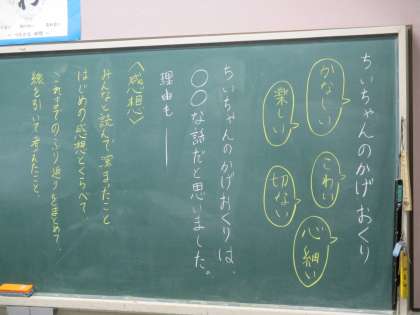 ちいちゃんのかげおくり
かなしい
こわい
心細い
楽しい
切ない
ちいちゃんのかげおくりは、
〇〇な話だと思いました。
理由も
〈感想〉
みんなと読んで深まったこと
はじめの感想とくらべて
これまでのふり返りをまとめて
線を引いて考えたこと